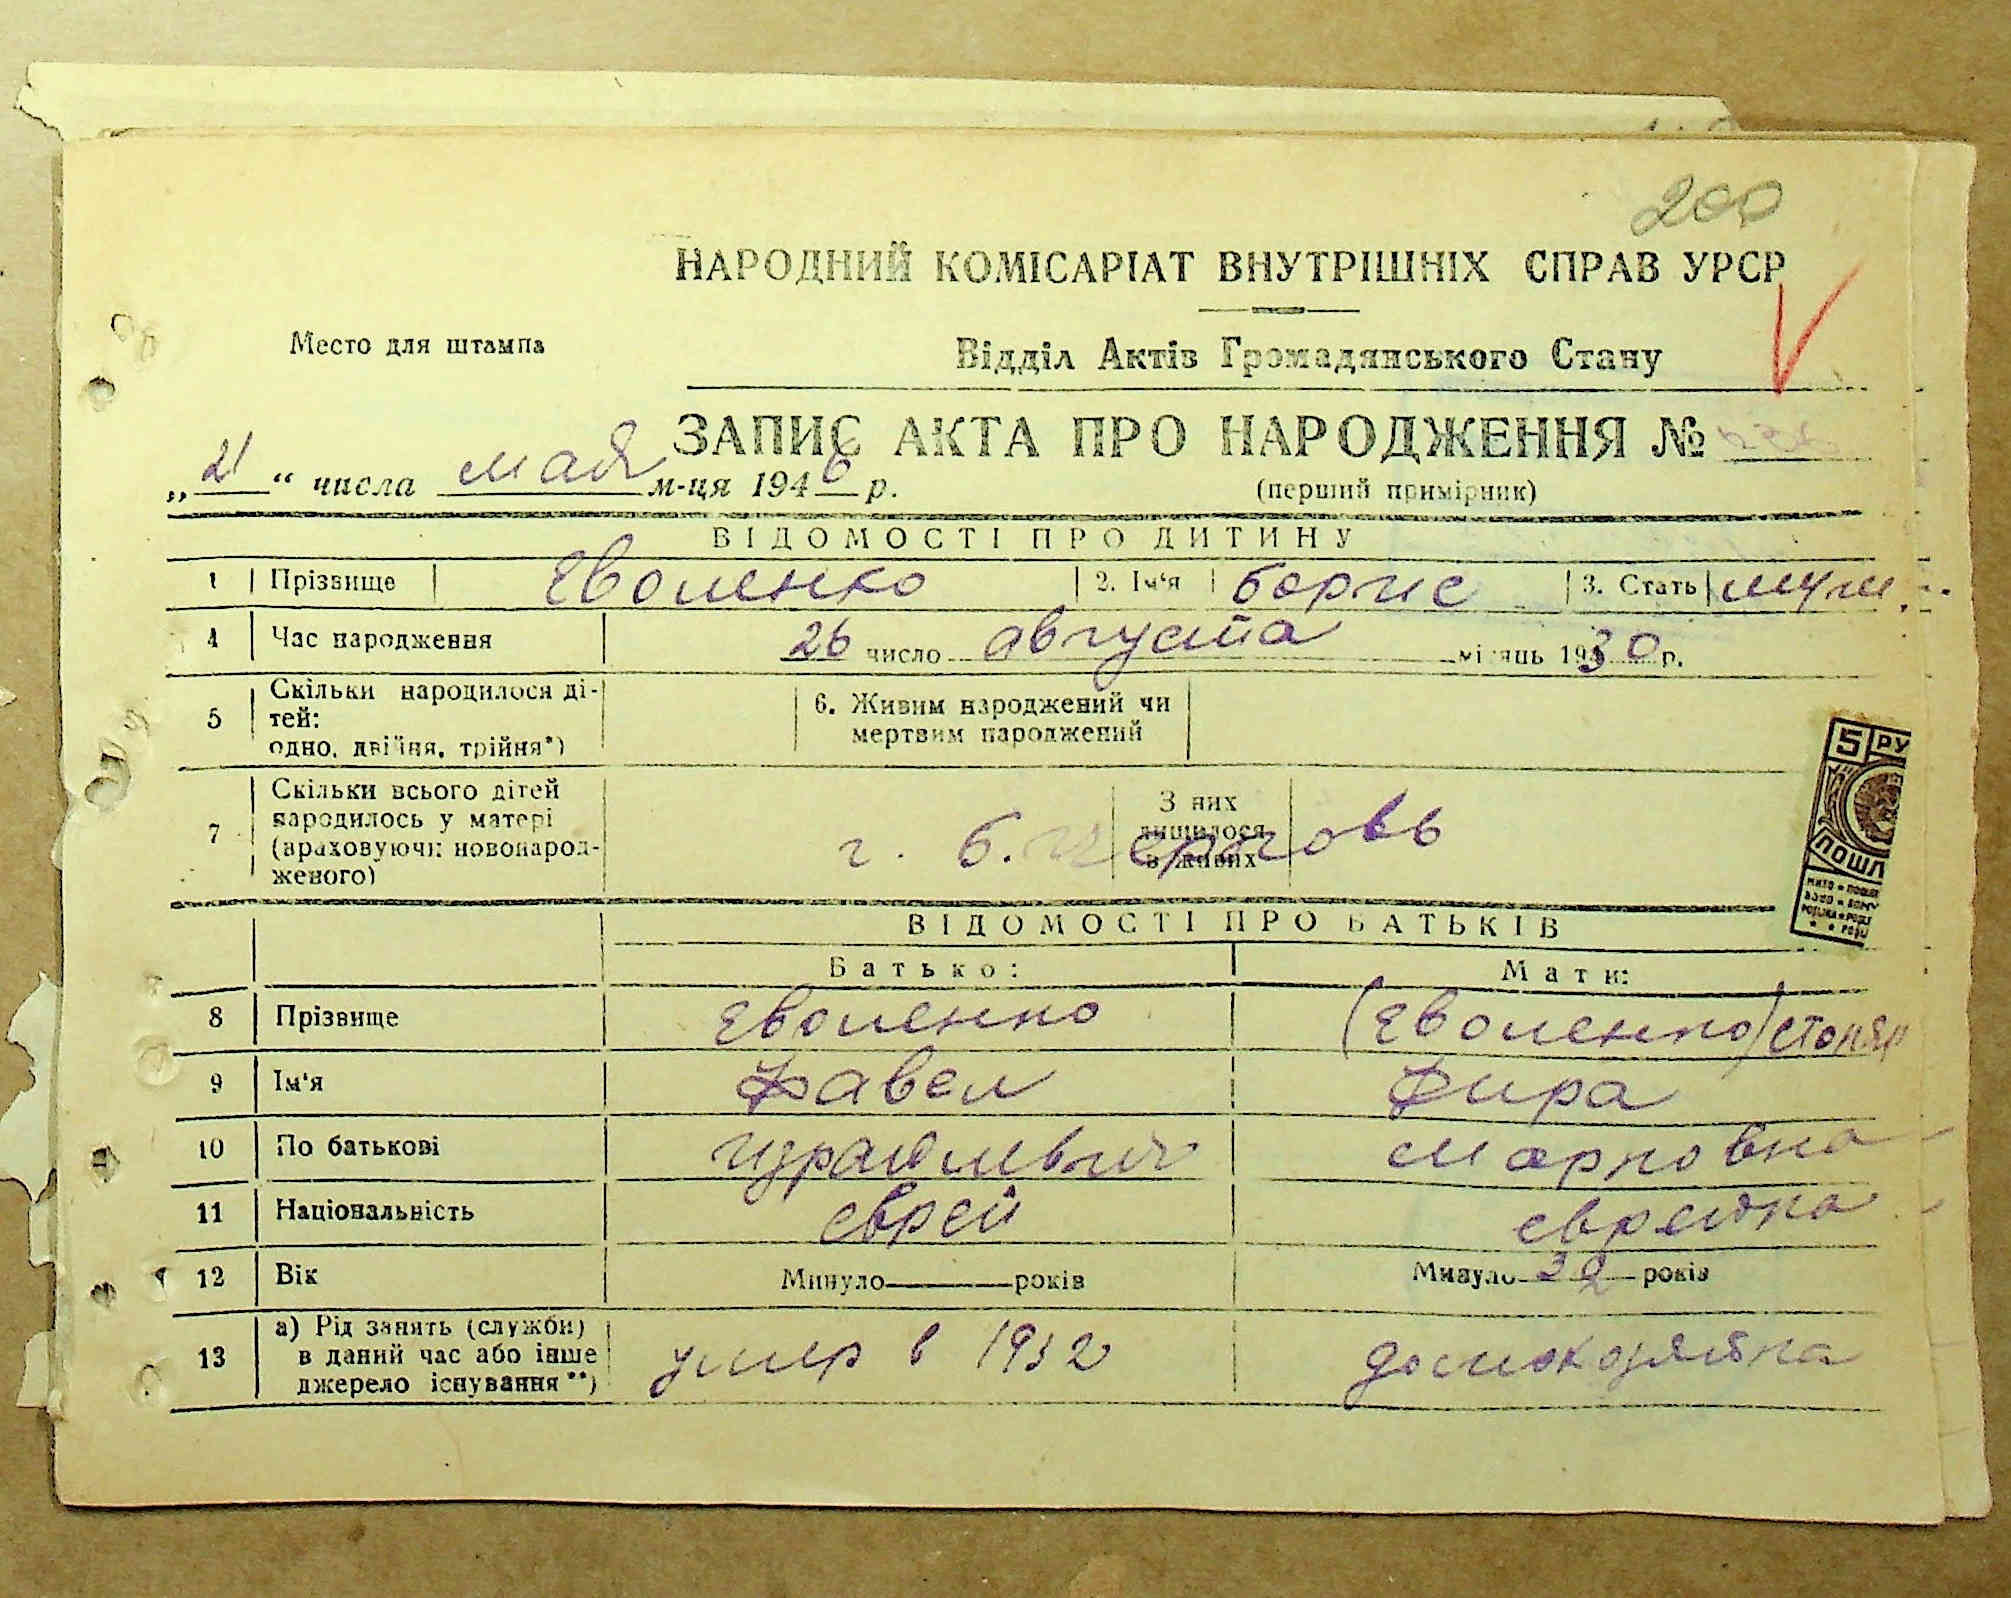 200
НАРОДНИЙ КОМІСАРІАТ ВНУТРІШНІХ СПРАВ УРСР
Место для штампа
Відділ Актів Громадянського Стану
ЗАПИС АКТА ПРО НАРОДЖЕННЯ №
„21“ числа мая м-ця 1946 р.
(перший примірник)
ВІДОМОСТІ ПРО ДИТИНУ
1 Прізвище Еволенко 2. Ім'я Борис 3. Стать муж.
4 Час народження 26 число августа місяць 1930 р.
5 Скільки народилося ді-
тей:
одно, двійня, трійня*)
6. Живим народжений чи
мертвим народжений
7 Скільки всього дітей
народилось у матері
(враховуючи новонарод-
женого)
З них
лишилося
в живих
г. Б.
5 РУ
ПОШЛ
ВІДОМОСТІ ПРО БАТЬКІВ
Батько: Мати:
8 Прізвище Еволенко (Еволенко) Столяр
9 Ім'я Павел Фира
10 По батькові Израйлевич Марковна
11 Національність еврей еврейка
12 Вік Минуло років Минуло 39 років
13 а) Рід занять (служби)
в даний час або інше
джерело існування**)
умер в 1932 домохозяйка